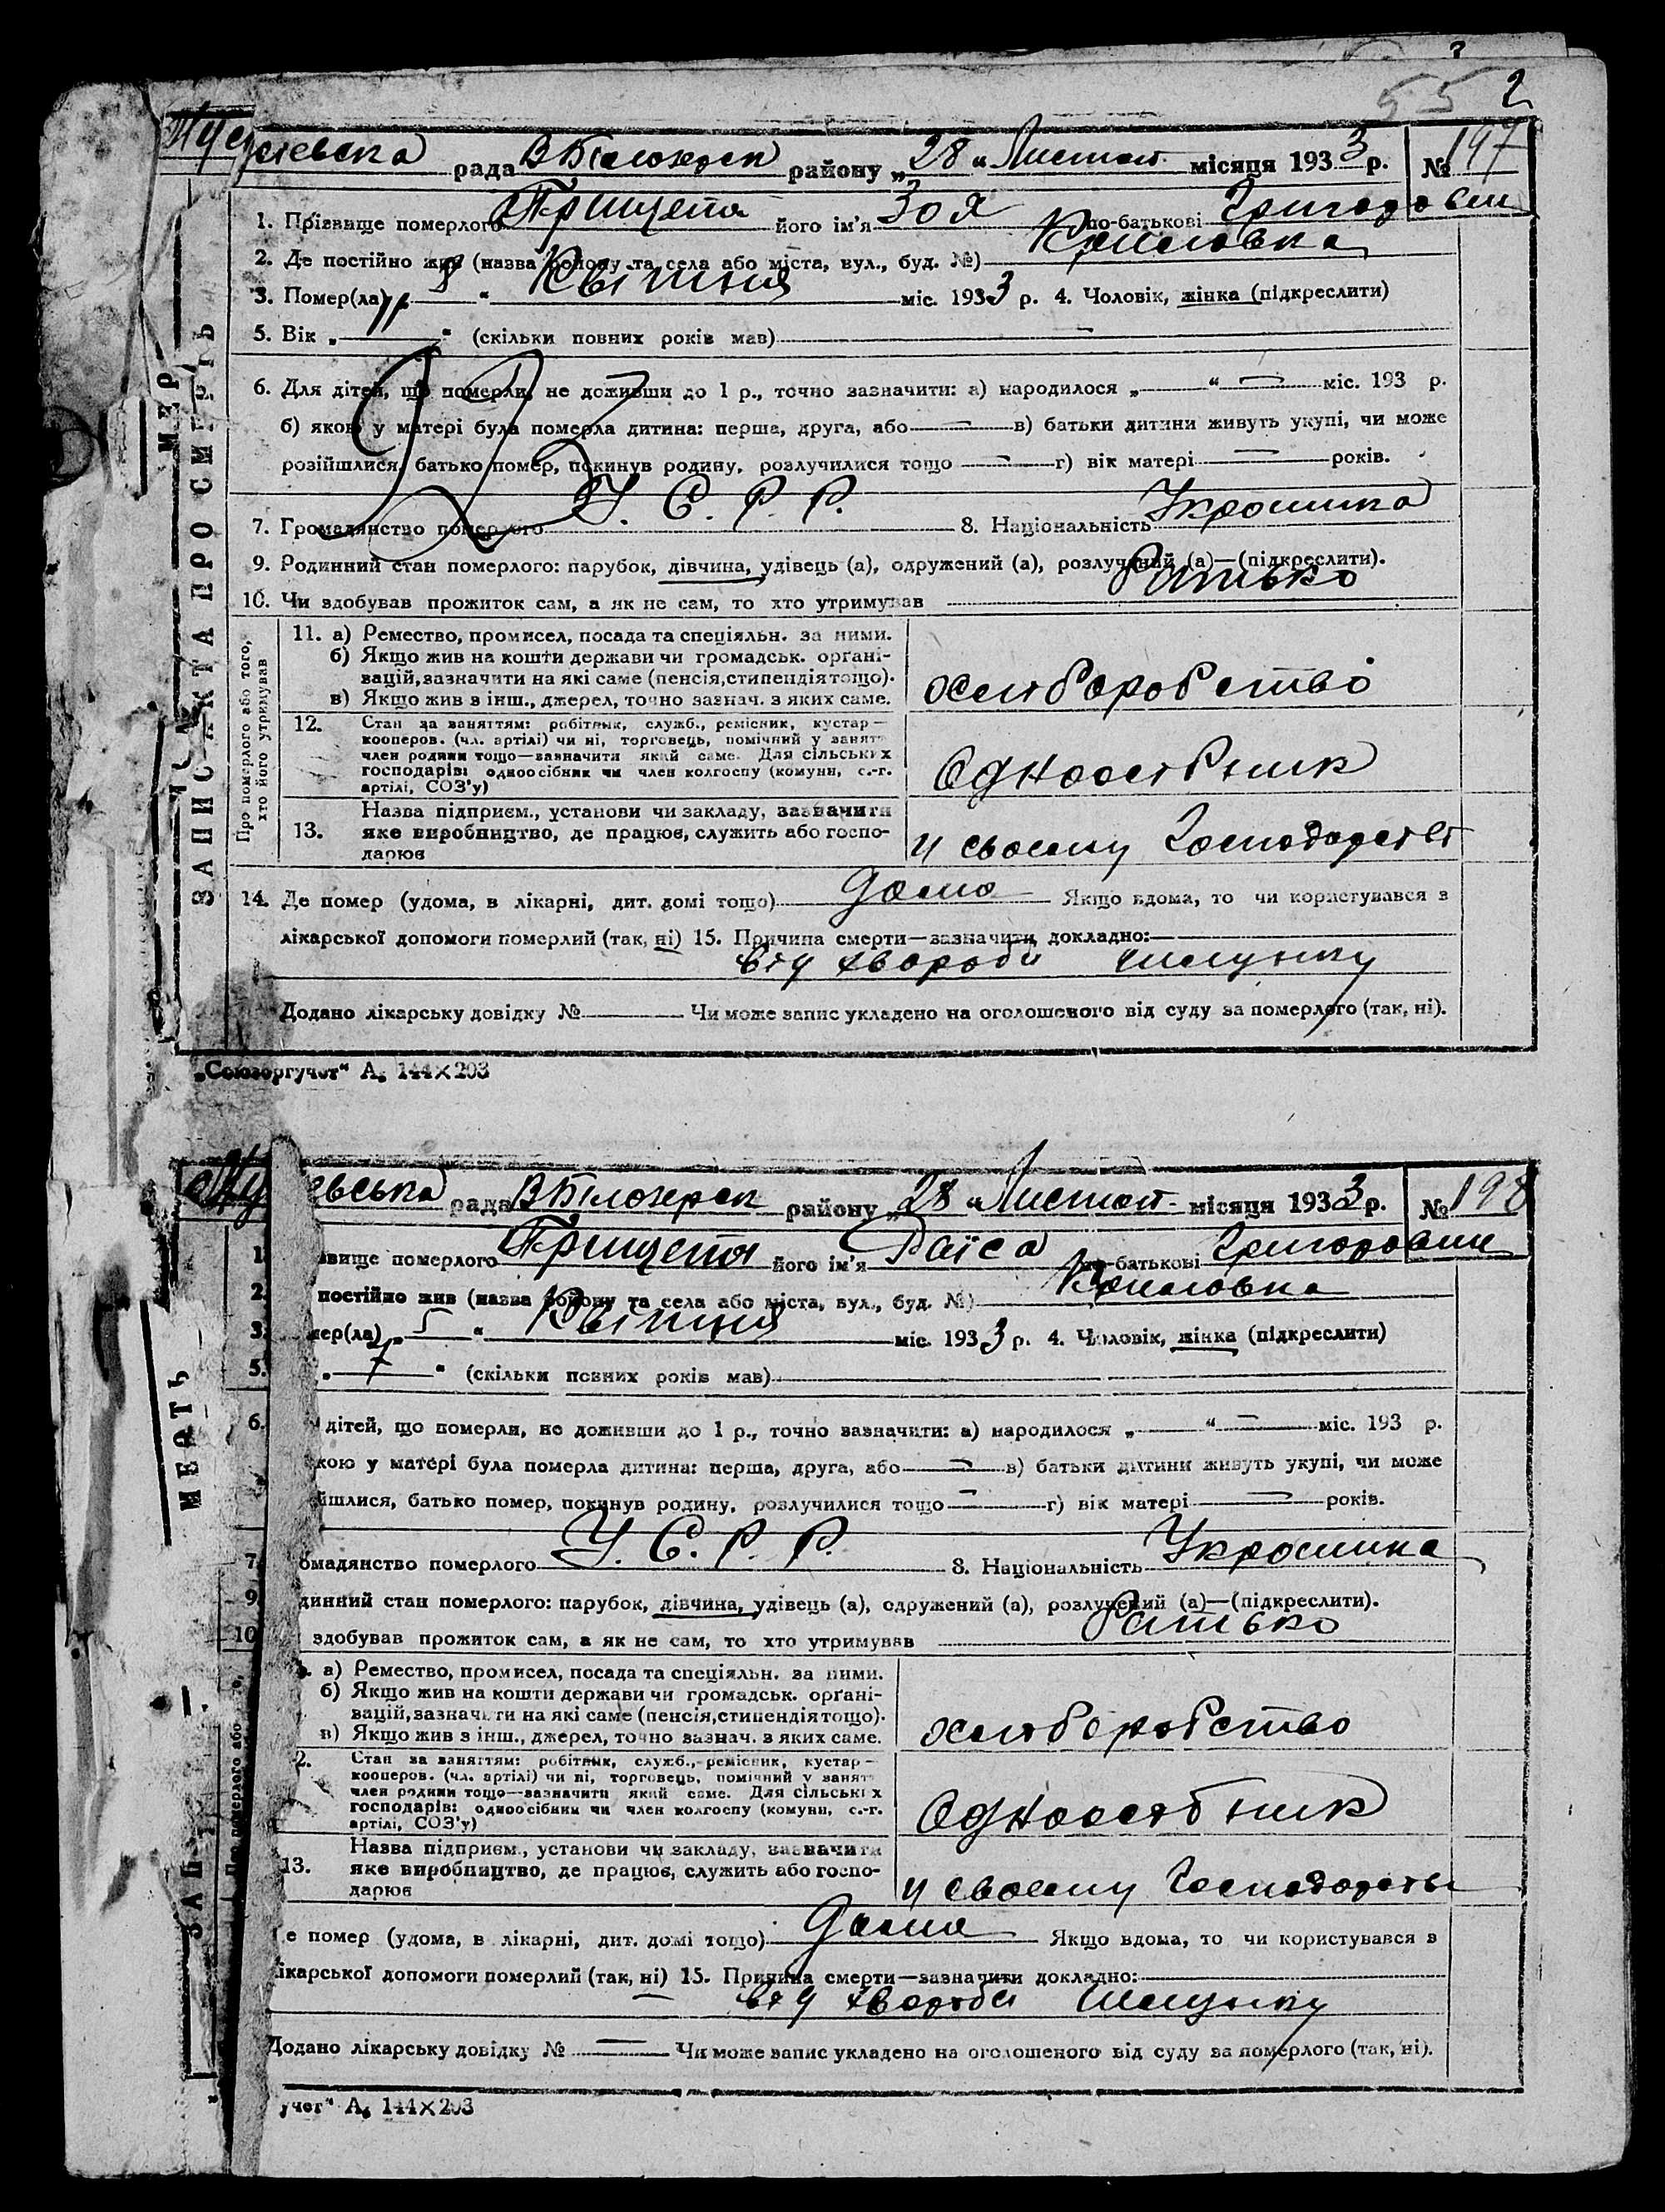 55 2
рада В Білозерск району „28 “ Листоп. місяця 1933 р. № 197
1. Прізвище померлого Прищепа його ім’я Зоя по-батькові Григоровни
2. Де постійно жив (назва району та села або міста, вул., буд. №)
3. Помер(ла) „ “ Квітня міс. 1933 р. 4. Чоловік, жінка (підкреслити)
5. Вік „ “ (скільки повних років мав)
6. Для дітей, що померли, не доживши до 1 р., точно зазначити: а) народилося „ “ — міс. 193 р.
б) якою у матері була померла дитина: перша, друга, або — в) батьки дитини живуть укупі, чи може
розійшлися, батько помер, покинув родину, розлучилися тощо — г) вік матері — років.
7. Громадянство померлого У. С. Р. Р. 8. Національність Украинка
9. Родинний стан померлого: парубок, дівчина, удівець (а), одружений (а), розлучений (а)—(підкреслити).
10. Чи здобував прожиток сам, а як не сам, то хто утримував Батько
ЗАПИС АКТА ПРО СМЕРТЬ
Про померлого або того, хто його утримував
11. а) Ремество, промисел, посада та спеціяльн. за ними.
б) Якщо жив на кошти держави чи громадськ. органі-
зацій, зазначити на які саме (пенсія, стипендія тощо).
в) Якщо жив з інш., джерел, точно зазнач. з яких саме.
хлиборобство
12. Стан за заняттям: робітник, служб., ремісник, кустар—
кооперов. (чл. артілі) чи ні, торговець, помічний у занятт
член родини тощо—зазначити який саме. Для сільських
господарів: одноосібник чи член колгоспу (комуни, с.-г.
артілі, СОЗ’у)
Одноосібник
Назва підприєм., установи чи закладу, зазначити
13. яке виробництво, де працює, служить або госпо-
дарює
у своему Господарстві
14. Де помер (удома, в лікарні, дит. домі тощо) дома Якщо вдома, то чи користувався з
лікарської допомоги померлий (так, ні) 15. Причина смерти—зазначити докладно:
від хвороби шлунку
Додано лікарську довідку № Чи може запис укладено на оголошеного від суду за померлого (так, ні).
„Союзоргучет“ А, 144×203
рада В Білозерск району „28 “ Листоп. місяця 1933 р. № 198
1. вище померлого Прищепа його ім’я Раїса по-батькові Григоровни
2. постійно жив (назва району та села або міста, вул., буд. №)
3. мер(ла) „5 “ Квітня міс. 1933 р. 4. Чоловік, жінка (підкреслити)
5. „ 7 “ (скільки повних років мав)
6. дітей, що померли, не доживши до 1 р., точно зазначити: а) народилося „ “ — міс. 193 р.
кою у матері була померла дитина: перша, друга, або — в) батьки дитини живуть укупі, чи може
йшлися, батько помер, покинув родину, розлучилися тощо — г) вік матері — років.
7. омадянство померлого У. С. Р. Р. 8. Національність Украинка
9. динний стан померлого: парубок, дівчина, удівець (а), одружений (а), розлучений (а)—(підкреслити).
10 здобував прожиток сам, а як не сам, то хто утримував Батько
а) Ремество, промисел, посада та спеціяльн. за ними.
б) Якщо жив на кошти держави чи громадськ. органі-
зацій, зазначити на які саме (пенсія, стипендія тощо).
в) Якщо жив з інш., джерел, точно зазнач. з яких саме.
хлиборобство
2. Стан за заняттям: робітник, служб., ремісник, кустар—
кооперов. (чл. артілі) чи ні, торговець, помічний у занятт
член родини тощо—зазначити який саме. Для сільських
господарів: одноосібник чи член колгоспу (комуни, с.-г.
артілі, СОЗ’у)
Одноосібник
Назва підприєм., установи чи закладу, зазначити
13. яке виробництво, де працює, служить або госпо-
дарює
у своему Господарстві
е помер (удома, в лікарні, дит. домі тощо) дома Якщо вдома, то чи користувався з
ікарської допомоги померлий (так, ні) 15. Причина смерти—зазначити докладно:
від хвороби шлунку
Додано лікарську довідку № — Чи може запис укладено на оголошеного від суду за померлого (так, ні).
учет“ А, 144×203